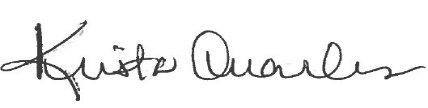 Krista Quarles